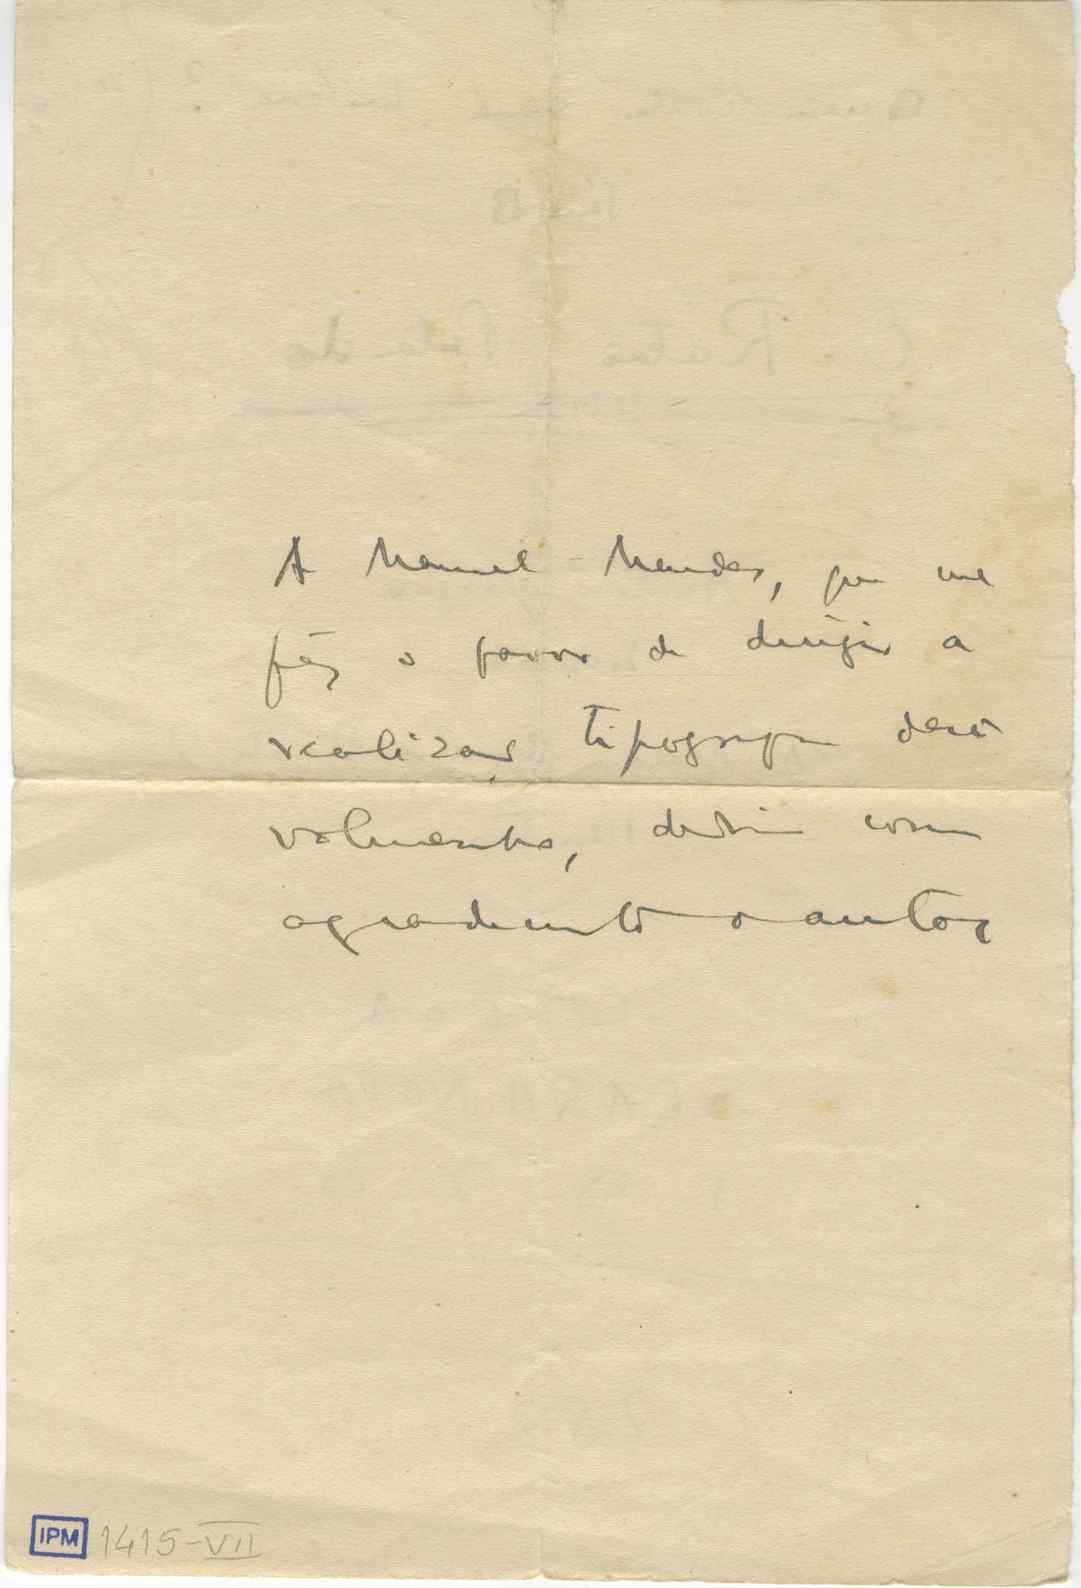 A Manuel Mendes, que me
fêz o favor de dirigir a
realizar tipogr deste
volumesinho, com
agradecimento o autor
IPM 1415-VII